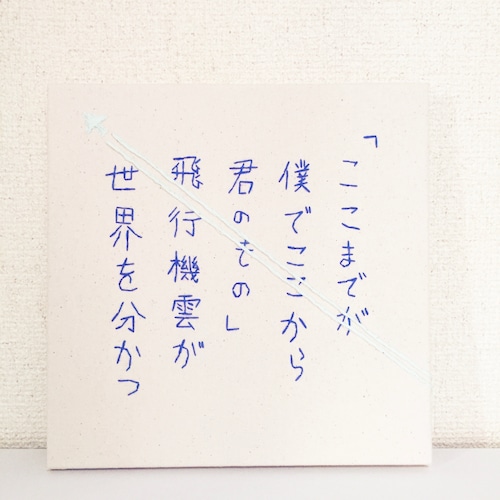 「ここまでが
僕でここから
君のもの」
飛行機雲が
世界を分かつ